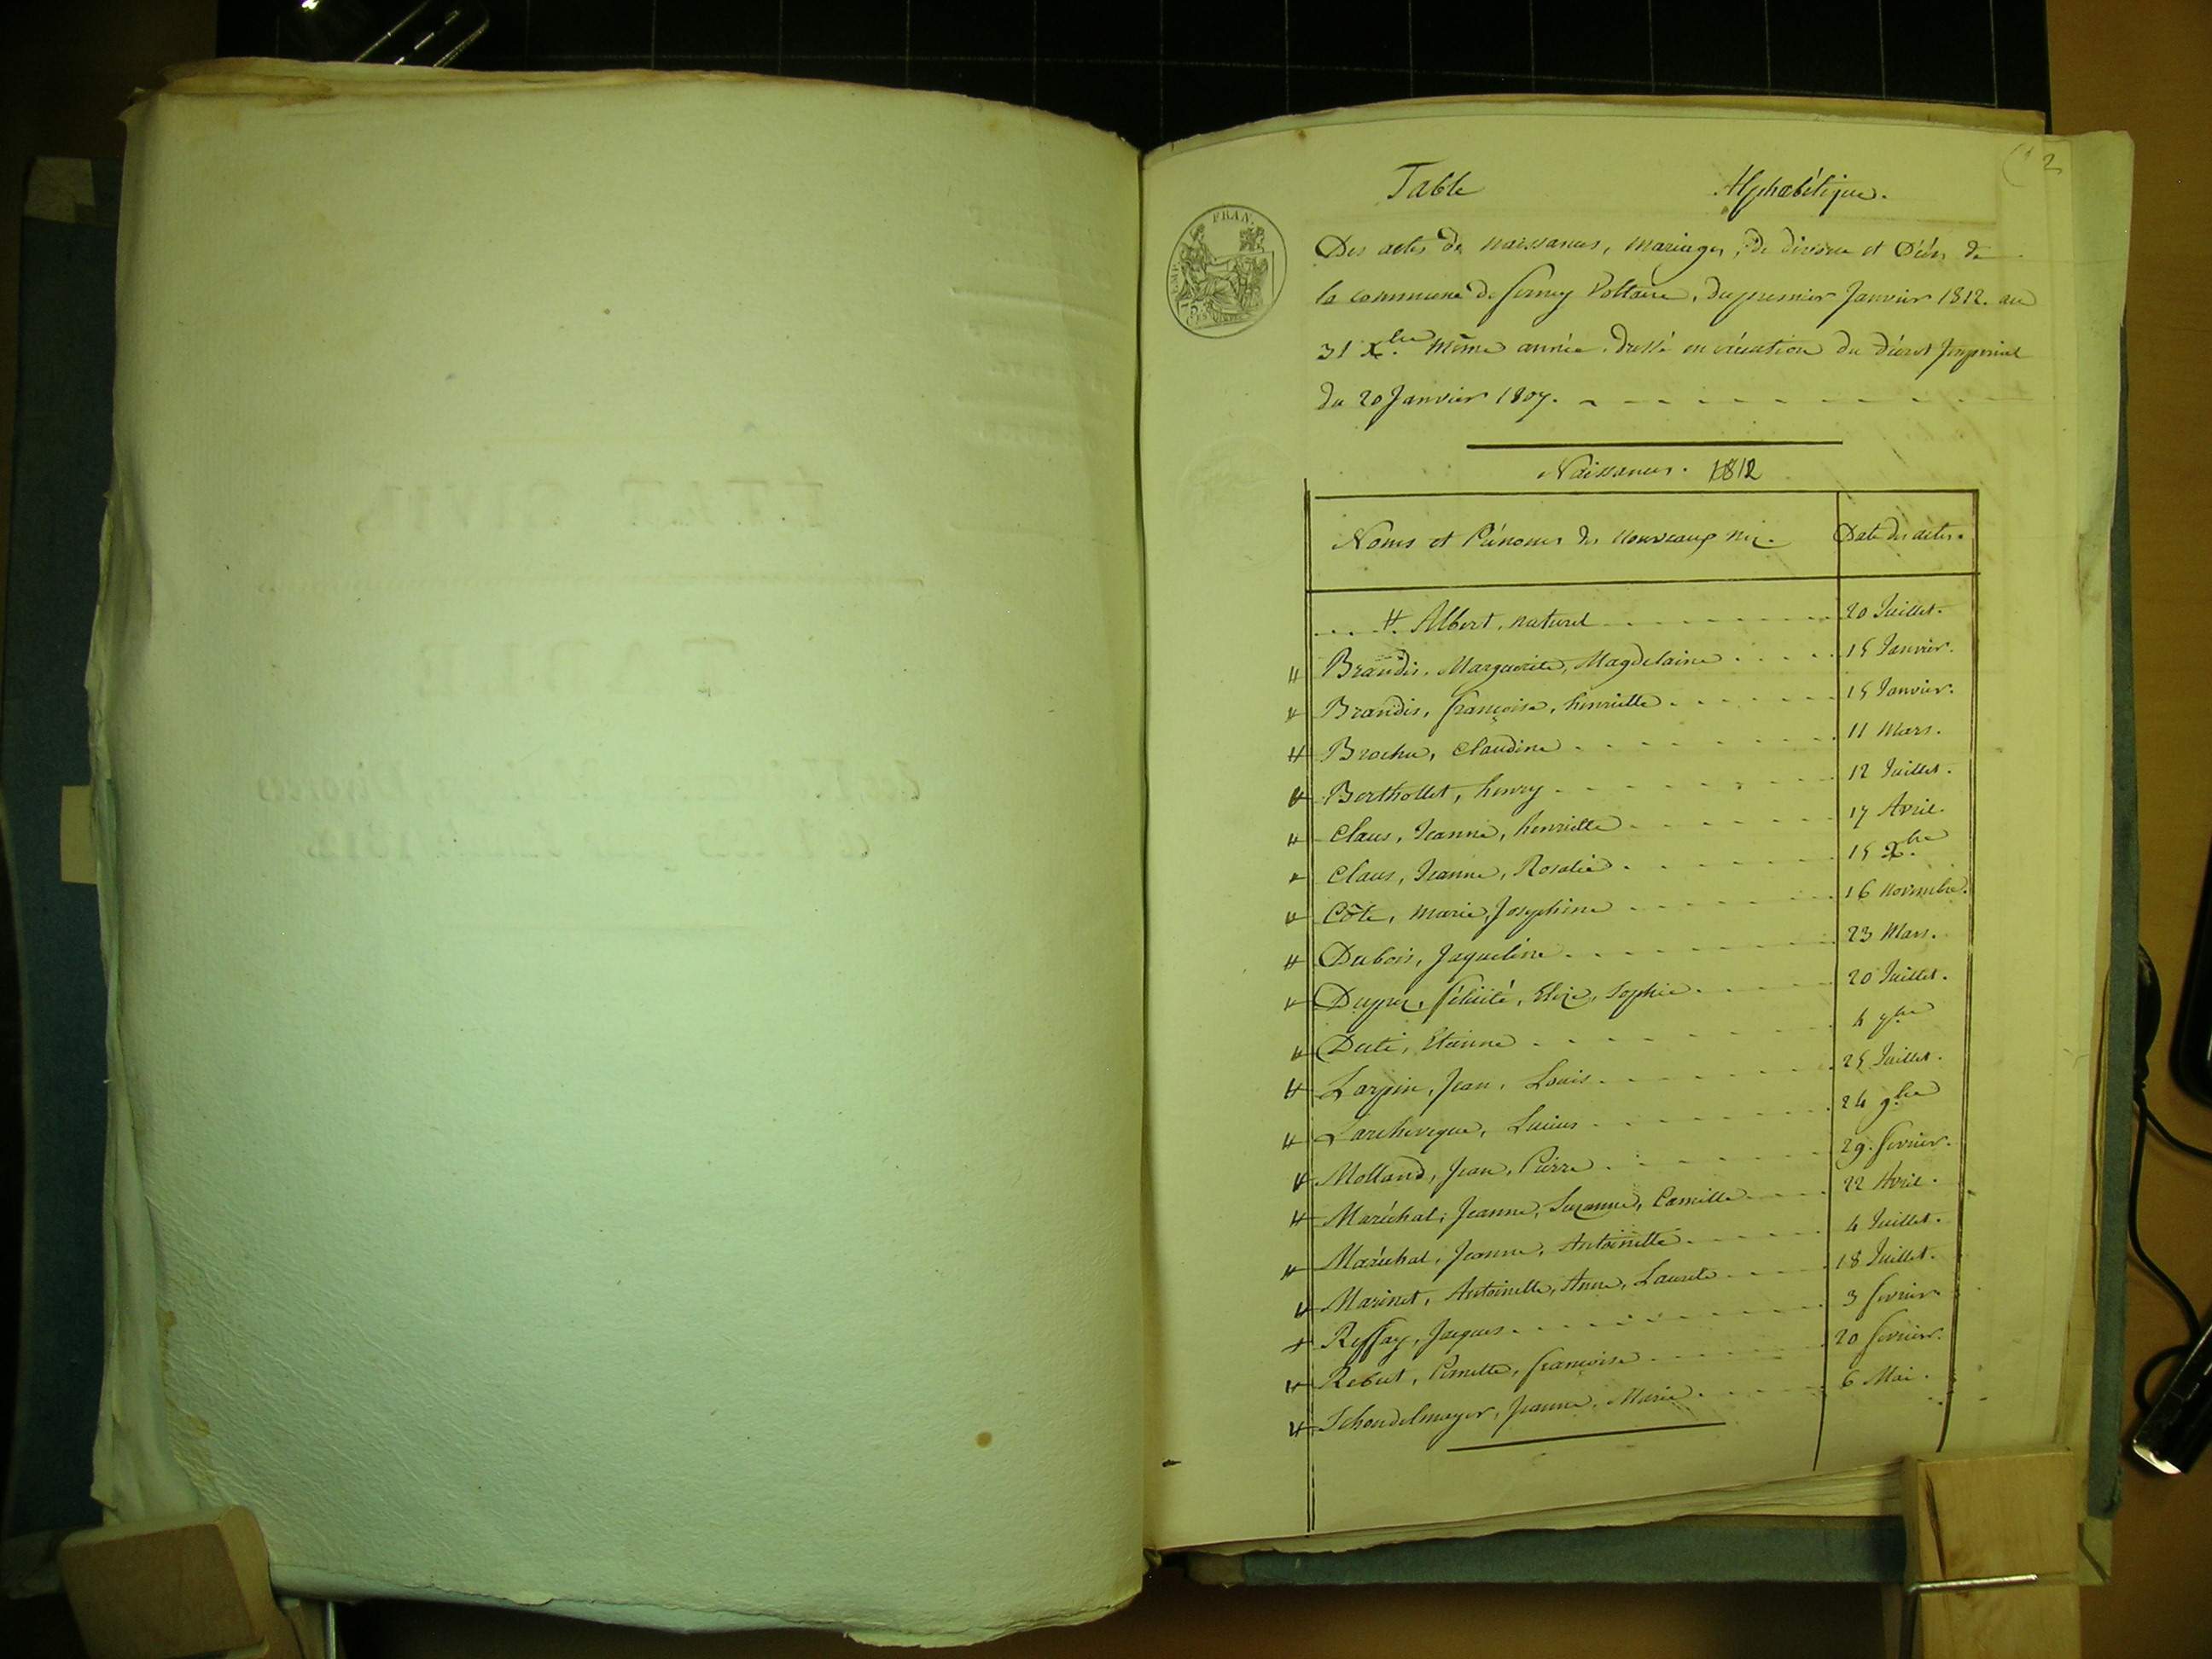 2
Table Alphabétique.
FRAN.
EMP.
75
CES
Des actes de naissances, Mariages, de divorce et Décès de
la commune de ferney Voltaire, du premier Janvier 1812. au
31 Xbre même année. dressé en éxécution du décret Imperial
du 20 Janvier 1807.
Naissances. 1812
Noms et Prénoms des nouveaux nez. Date des actes.
Albert, naturel 20 Juillet.
Brandis, Marguerite, Magdelaine 15 Janvier.
Brandis, françoise, henriette 15 Janvier.
Brochu, Claudine 11 Mars.
Berthollet, henry 12 Juillet.
Claus, Jeanne, henriette 17 Avril.
Claus, Jeanne, Rosalie 15 Xbre
Côte, Marie, Josephine 16 Novembre.
Dubois, Jaqueline 23 Mars.
Duprez, félicité, Elize, Sophie 20 Juillet.
Duté, Etienne 4 7bre
Larpin, Jean, Louis 25 Juillet.
Larcheveque, Lucien 24 9bre
Molland, Jean, Pierre 29. fevrier.
Maréchal, Jeanne, Suzanne, Camille 22 Avril.
Maréchal, Jeanne, Antoinette 4 Juillet.
Marinet, Antoinette, Anne, Laurete 18 Juillet.
Reffay, Jacques 3 fevrier
Rebut, Pernette, françoise 20 fevrier.
Schoudelmayer, Jeanne, Marie 6 Mai.